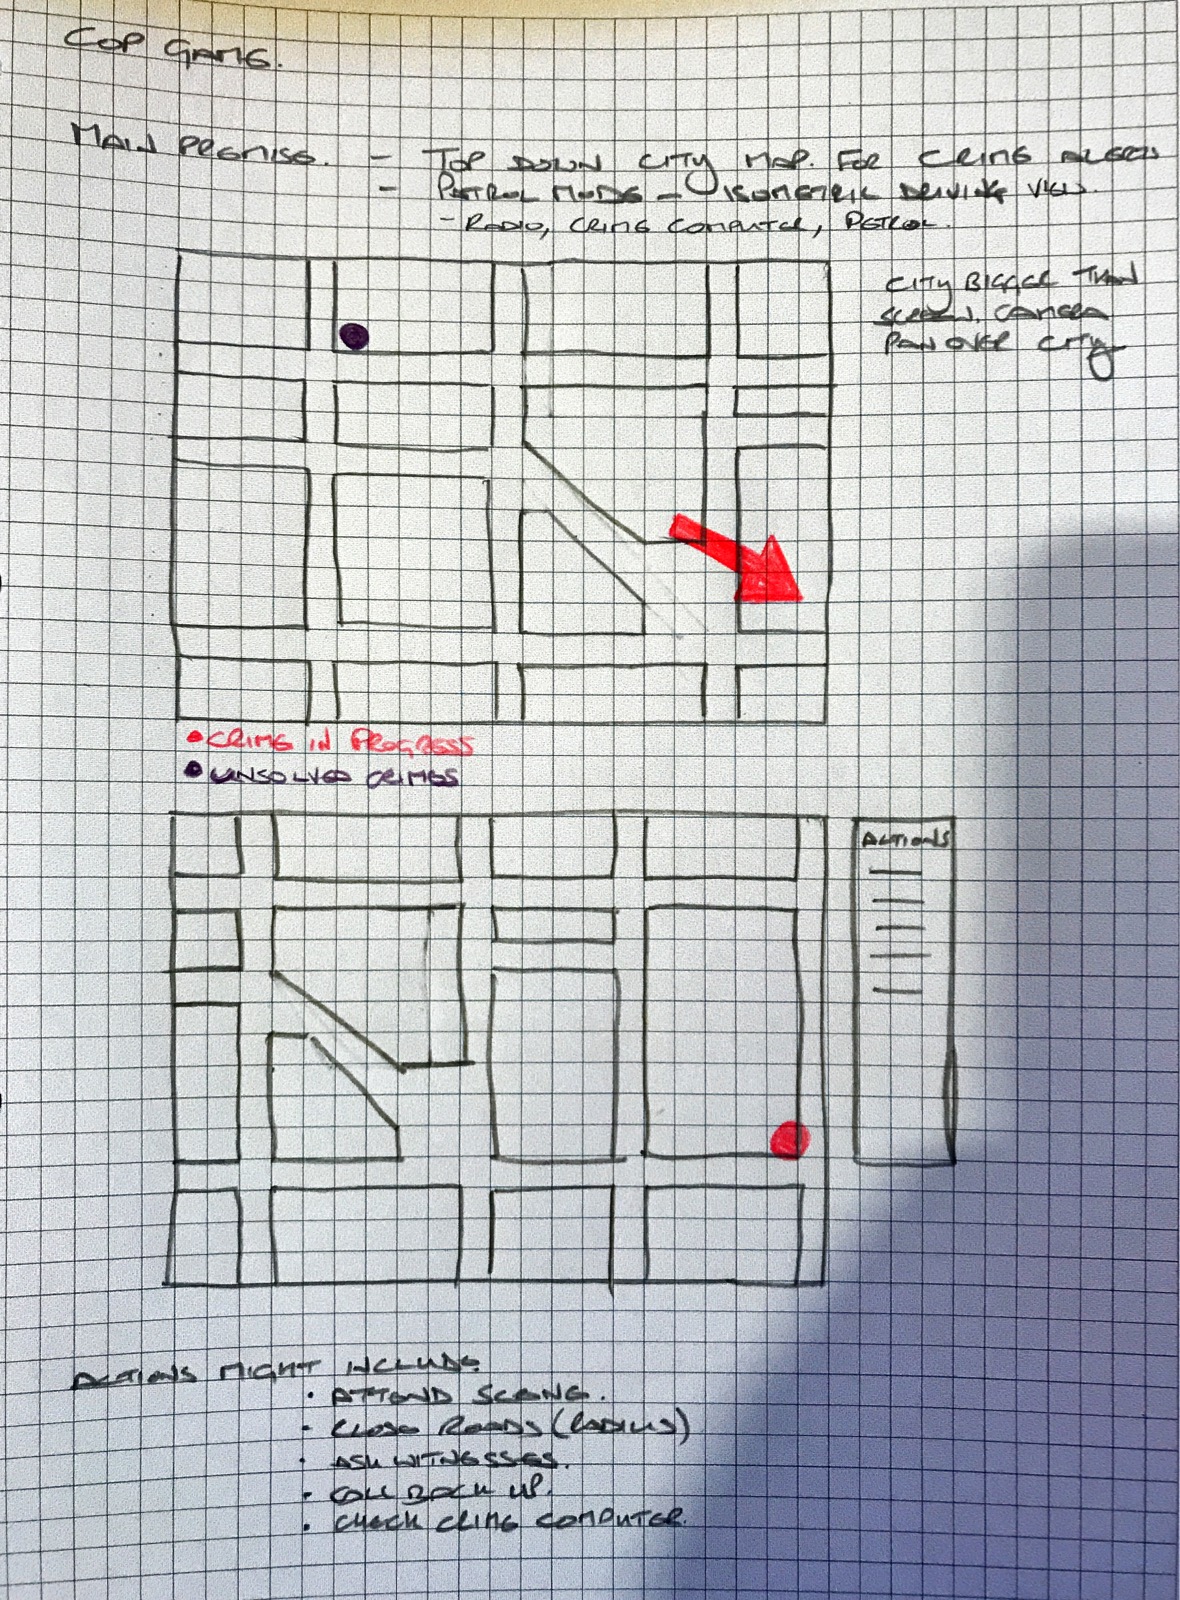 COP GAME.
MAIN PREMISE. - TOP DOWN CITY MAP. FOR CRIME ALERTS
- PATROL MODE - ISOMETRIC DRIVING VIEW.
- RADIO, CRIME COMPUTER, PETROL.
CITY BIGGER THAN
SCREEN. CAMERA
PAN OVER CITY
• CRIME IN PROGRESS
• UNSOLVED CRIMES
ACTIONS
ACTIONS MIGHT INCLUDE
• ATTEND SCENE.
• CLOSE ROADS (RADIUS)
• ASK WITNESSES.
• CALL BACK UP.
• CHECK CRIME COMPUTER.